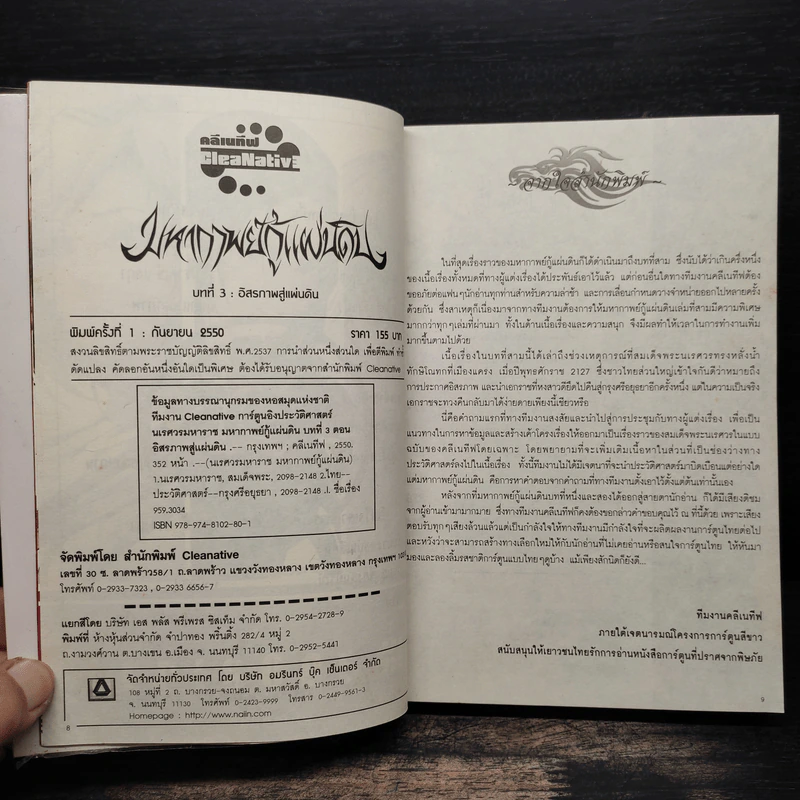 คลีเนทีฟ
CleaNative
มหากาพย์กู้แผ่นดิน
บทที่ 3 : อิสรภาพสู่แผ่นดิน
พิมพ์ครั้งที่ 1 : กันยายน 2550 ราคา 155 บาท
สงวนลิขสิทธิ์ตามพระราชบัญญัติลิขสิทธิ์ พ.ศ.2537 การนำส่วนหนึ่งส่วนใด เพื่อตีพิมพ์
ดัดแปลง คัดลอกอันหนึ่งอันใดเป็นพิเศษ ต้องได้รับอนุญาตจากสำนักพิมพ์ Cleanative
ข้อมูลทางบรรณานุกรมของหอสมุดแห่งชาติ
ทีมงาน Cleanative การ์ตูนอิงประวัติศาสตร์
นเรศวรมหาราช มหากาพย์กู้แผ่นดิน บทที่ 3 ตอน
อิสรภาพสู่แผ่นดิน .-- กรุงเทพฯ ; คลีเนทีฟ , 2550.
352 หน้า .--(นเรศวรมหาราช มหากาพย์กู้แผ่นดิน)
1.นเรศวรมหาราช, สมเด็จพระ, 2098-2148 2.ไทย--
ประวัติศาสตร์--กรุงศรีอยุธยา , 2098-2148 .I. ชื่อเรื่อง
959.3034
ISBN 978-974-8102-80-1
จัดพิมพ์โดย สำนักพิมพ์ Cleanative
เลขที่ 30 ซ. ลาดพร้าว58/1 ถ.ลาดพร้าว แขวงวังทองหลาง เขตวังทองหลาง กรุงเทพฯ
โทรศัพท์ 0-2933-7323 , 0-2933 6656-7
แยกสีโดย บริษัท เอส พลัส พรีเพรส ซิสเท็ม จำกัด โทร. 0-2954-2728-9
พิมพ์ที่ ห้างหุ้นส่วนจำกัด จำปาทอง พริ้นติ้ง 282/4 หมู่ 2
ถ.งามวงศ์วาน ต.บางเขน อ.เมือง จ. นนทบุรี 11140 โทร. 0-2952-5441
จัดจำหน่ายทั่วประเทศ โดย บริษัท อมรินทร์ บุ๊ค เซ็นเตอร์ จำกัด
108 หมู่ที่ 2 ถ. บางกรวย-จงถนอม ต. มหาสวัสดิ์ อ. บางกรวย
จ. นนทบุรี 11130 โทรศัพท์ 0-2423-9999 โทรสาร 0-2449-9561-3
Homepage : http://www.naiin.com
8
จากใจสำนักพิมพ์
ในที่สุดเรื่องราวของมหากาพย์กู้แผ่นดินก็ได้ดำเนินมาถึงบทที่สาม ซึ่งนับได้ว่าเกินครึ่งหนึ่ง
ของเนื้อเรื่องทั้งหมดที่ทางผู้แต่งเรื่องได้ประพันธ์เอาไว้แล้ว แต่ก่อนอื่นใดทางทีมงานคลีเนทีฟต้อง
ขออภัยต่อแฟนๆนักอ่านทุกท่านสำหรับความล่าช้า และการเลื่อนกำหนดวางจำหน่ายออกไปหลายครั้ง
ด้วยกัน ซึ่งสาเหตุก็เนื่องมาจากทางทีมงานต้องการให้มหากาพย์กู้แผ่นดินเล่มที่สามมีความพิเศษ
มากกว่าทุกๆเล่มที่ผ่านมา ทั้งในด้านเนื้อเรื่องและความสนุก จึงมีผลทำให้เวลาในการทำงานเพิ่ม
มากขึ้นตามไปด้วย
เนื้อเรื่องในบทที่สามนี้ได้เล่าถึงช่วงเหตุการณ์ที่สมเด็จพระนเรศวรทรงหลั่งน้ำ
ทักษิโณทกที่เมืองแครง เมื่อปีพุทธศักราช 2127 ซึ่งชาวไทยส่วนใหญ่เข้าใจกันดีว่าหมายถึง
การประกาศอิสรภาพ และนำเอกราชที่หงสาวดียึดไปคืนสู่กรุงศรีอยุธยาอีกครั้งหนึ่ง แต่ในความเป็นจริง
เอกราชจะทวงคืนกลับมาได้ง่ายดายเพียงนี้เชียวหรือ
นี่คือคำถามแรกที่ทางทีมงานสงสัยและนำไปสู่การประชุมกับทางผู้แต่งเรื่อง เพื่อเป็น
แนวทางในการหาข้อมูลและสร้างเค้าโครงเรื่องให้ออกมาเป็นเรื่องราวของสมเด็จพระนเรศวรในแบบ
ฉบับของคลีเนทีฟโดยเฉพาะ โดยพยายามที่จะเพิ่มเติมเนื้อหาในส่วนที่เป็นช่องว่างทาง
ประวัติศาสตร์ลงไปในเนื้อเรื่อง ทั้งนี้ทีมงานไม่ได้มีเจตนาที่จะนำประวัติศาสตร์มาบิดเบือนแต่อย่างใด
แต่มหากาพย์กู้แผ่นดิน คือการหาคำตอบจากคำถามที่ทางทีมงานตั้งเอาไว้ตั้งแต่ต้นเท่านั้นเอง
หลังจากที่มหากาพย์กู้แผ่นดินบทที่หนึ่งและสองได้ออกสู่สายตานักอ่าน ก็ได้มีเสียงติชม
จากผู้อ่านเข้ามามากมาย ซึ่งทางทีมงานคลีเนทีฟก็คงต้องขอกล่าวคำขอบคุณไว้ ณ ที่นี้ด้วย เพราะเสียง
ตอบรับทุกๆเสียงล้วนแล้วแต่เป็นกำลังใจให้ทางทีมงานมีกำลังใจที่จะผลิตผลงานการ์ตูนไทยต่อไป
และหวังว่าจะสามารถสร้างทางเลือกใหม่ให้กับนักอ่านที่ไม่เคยอ่านหรือสนใจการ์ตูนไทย ให้หันมา
มองและลองลิ้มรสชาติการ์ตูนแบบไทยๆดูบ้าง แม้เพียงสักนิดก็ยังดี...
ทีมงานคลีเนทีฟ
ภายใต้เจตนารมณ์โครงการการ์ตูนสีขาว
สนับสนุนให้เยาวชนไทยรักการอ่านหนังสือการ์ตูนที่ปราศจากพิษภัย
9